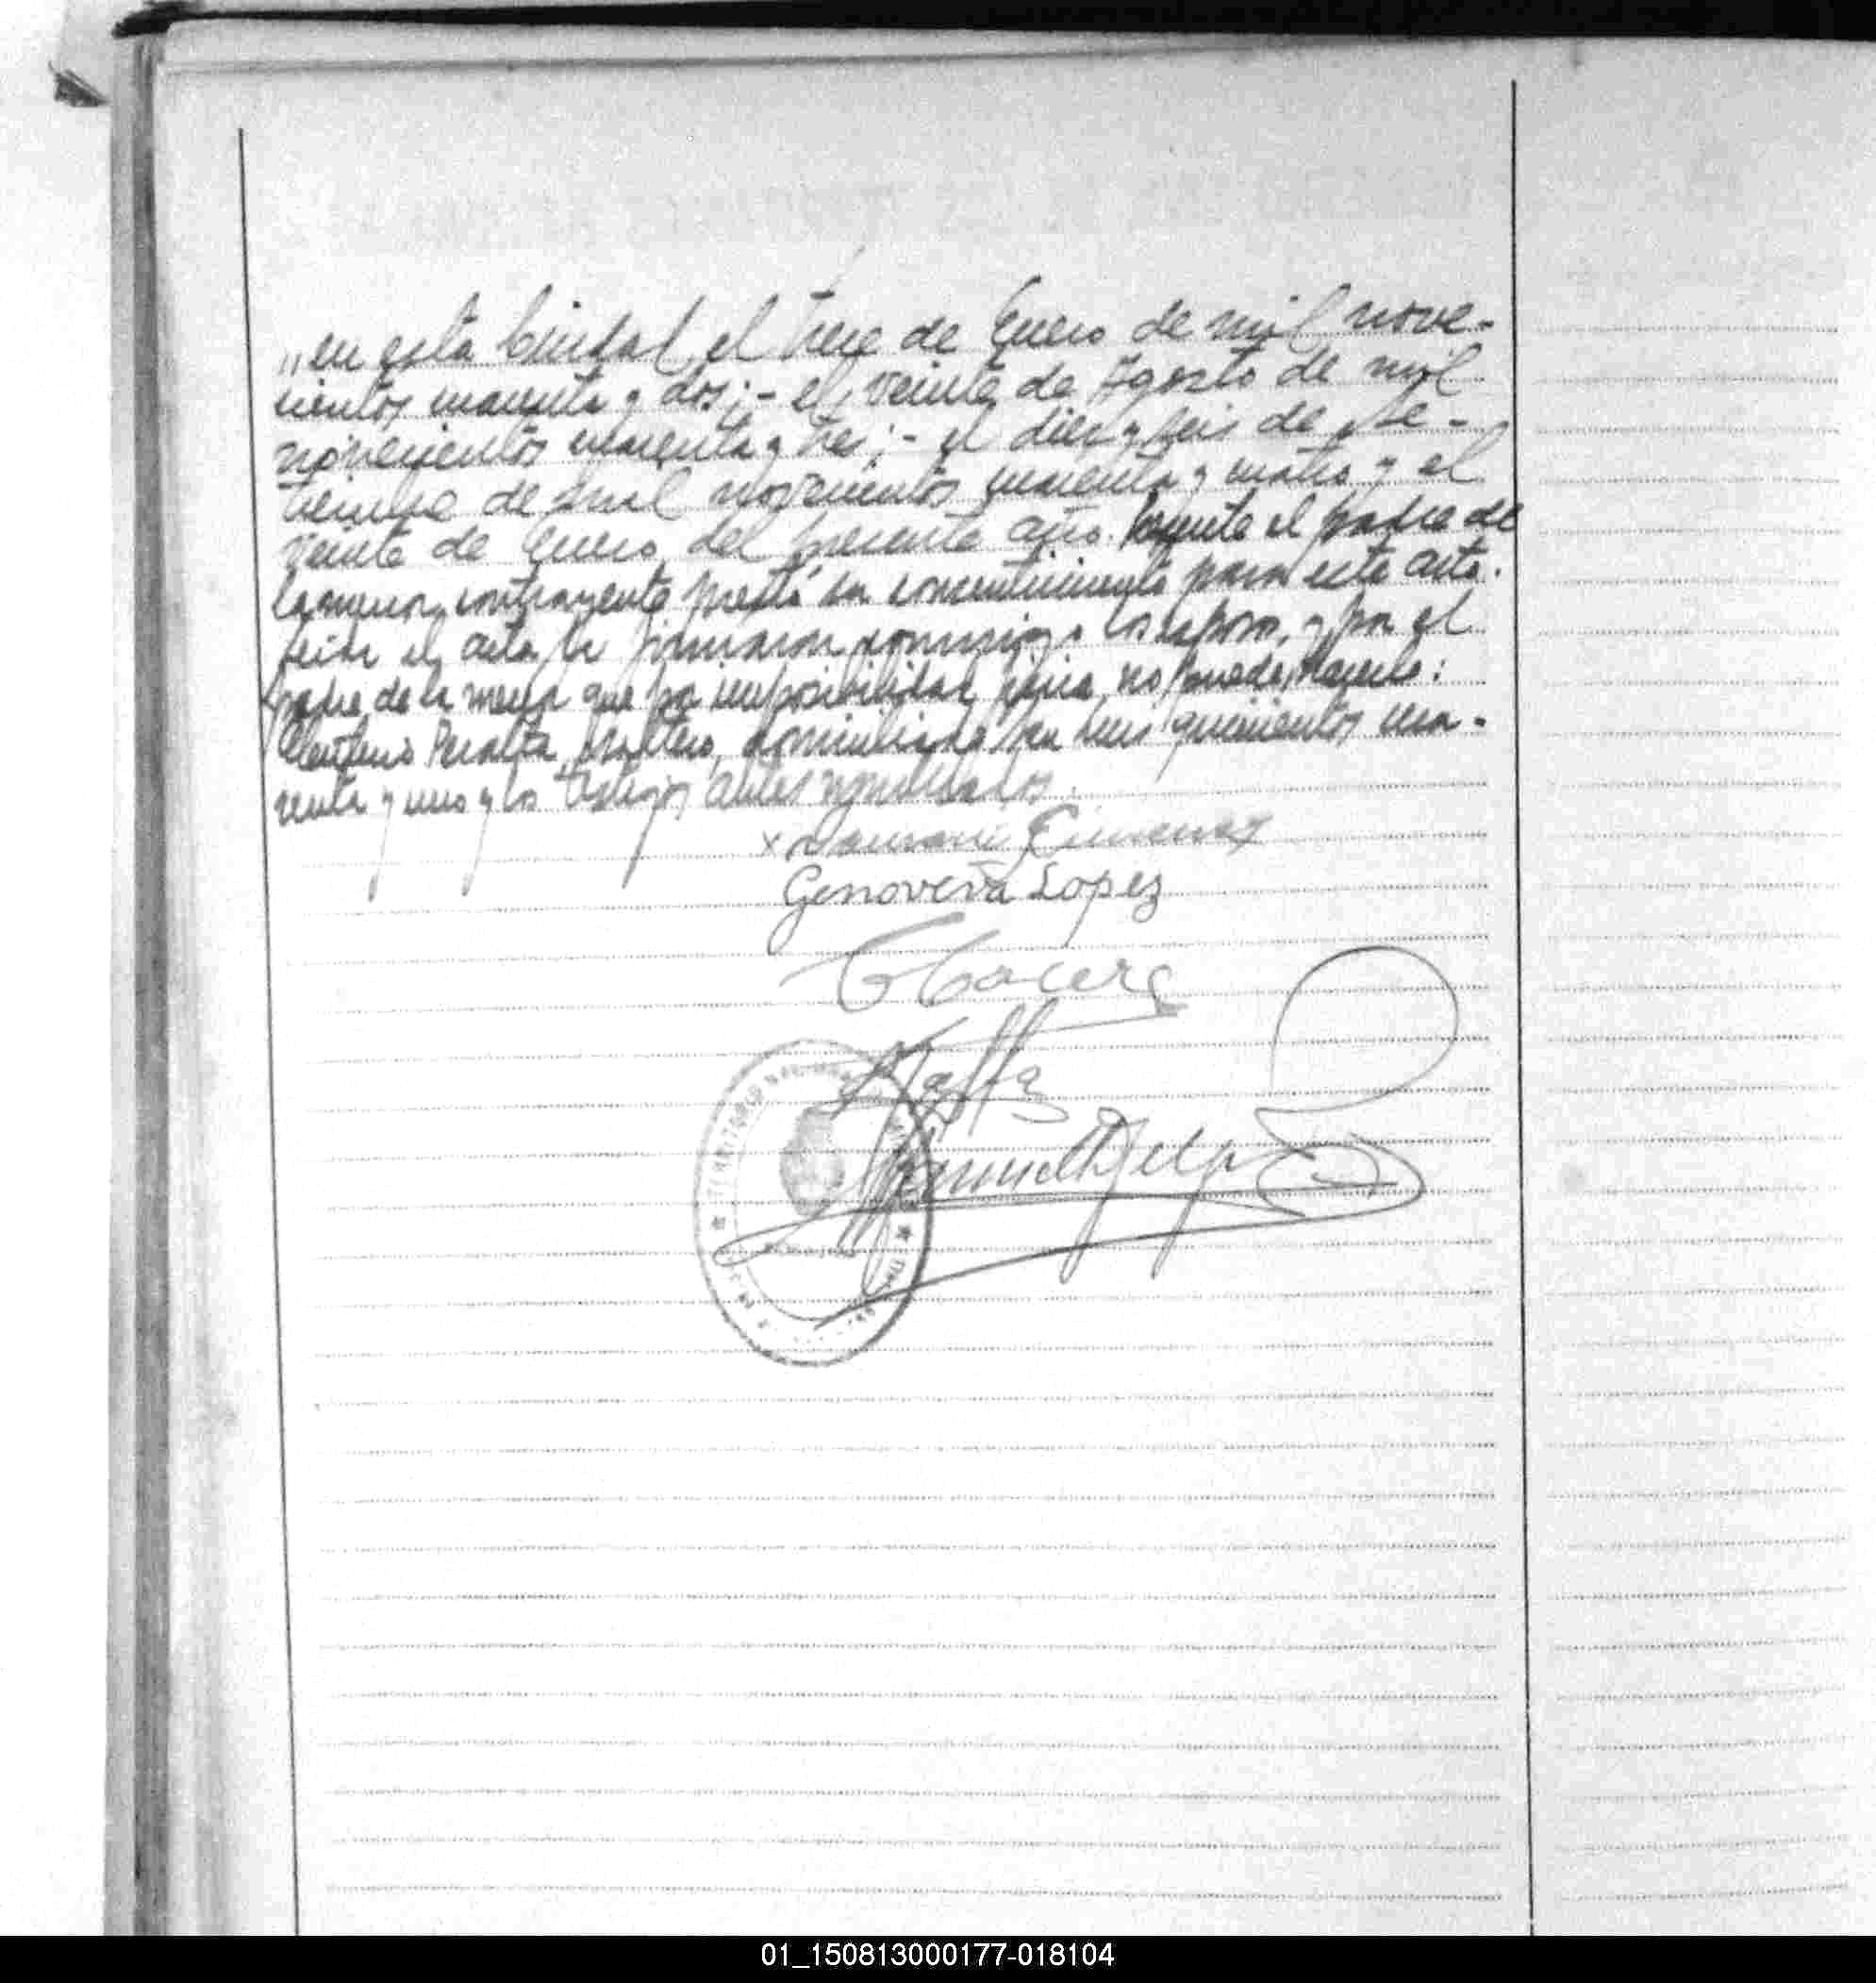 „en esta Ciudad el trece de Enero de mil nove-
cientos cuarenta y dos;- el veinte de Agosto de mil
novecientos cuarenta y tres;- el diez y seis de Se-
tiembre de mil novecientos cuarenta y cuatro y el
veinte de Enero del presente año. Presente el padre de
la menor contrayente prestó su consentimiento para este acto.
Leida el acta la firmaron conmigo los esposos, y por el
padre de la menor que por imposibilidad física no puede hacerlo:
Peralta, soltero, domiciliado en quinientos cua-
renta y uno y los testigos antes nombrados.
x Gimenez
Genoveva Lopez
TERRITORIO NACIONAL
01_150813000177-018104